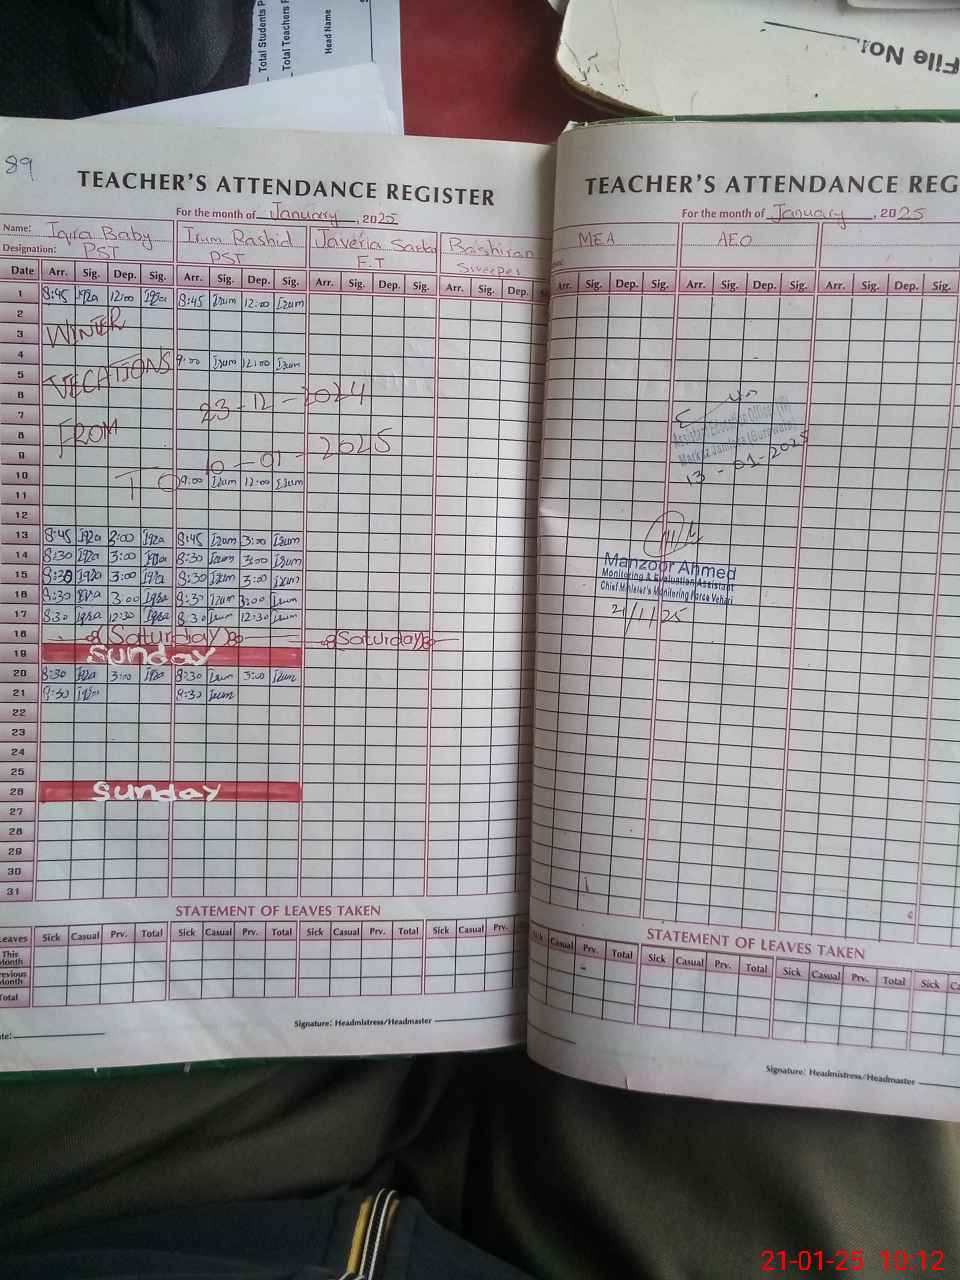 Total Students P
Total Teachers P
Head Name
File No:
89
TEACHER'S ATTENDANCE REGISTER
For the month of January, 2025
Name: Iqra Baby Irum Rashid Javeria Bakhiran
Designation: PST PST F.T Sweeper
Date Arr. Sig. Dep. Sig. Arr. Sig. Dep. Sig. Arr. Sig. Dep. Sig. Arr. Sig. Dep.
1 8:45 Iqra 12:00 Iqra 8:45 Irum 12:00 Irum
2
3 WINTER
4 9:00 Irum 12:00 Irum
5 VECATIONS
6 23-12-2024
7
8 FROM
9 10-01-2025
10 TO 9:00 Irum 12:00 Irum
11
12
13 8:45 Iqra 2:00 Iqra 8:45 Irum 3:00 Irum
14 8:30 Iqra 3:00 Iqra 8:30 Irum 3:00 Irum
15 8:30 Iqra 3:00 Iqra 8:30 Irum 3:00 Irum
16 8:30 Iqra 3:00 Iqra 8:30 Irum 3:00 Irum
17 8:30 Iqra 12:30 Iqra 8:30 Irum 12:30 Irum
18 Saturday Saturday
19 Sunday
20 8:30 Iqra 3:00 Iqra 8:30 Irum 3:00 Irum
21 8:30 Iqra 8:30 Irum
22
23
24
25
26 Sunday
27
28
29
30
31
STATEMENT OF LEAVES TAKEN
Leaves Sick Casual Prv. Total Sick Casual Prv. Total Sick Casual Prv. Total Sick Casual Prv.
This Month
Previous Month
Total
Signature: Headmistress/Headmaster
TEACHER'S ATTENDANCE REG
For the month of January, 2025
MEA AEO
Arr. Sig. Dep. Sig. Arr. Sig. Dep. Sig. Arr. Sig. Dep. Sig.
Assistant Education Officer
Markaz Jamlera
13-01-2025
Manzoor Ahmed
Monitoring & Evaluation Assistant
Chief Minister's Monitoring Force Vehari
21/1/25
STATEMENT OF LEAVES TAKEN
Sick Casual Prv. Total Sick Casual Prv. Total Sick Casual Prv. Total Sick
Signature: Headmistress/Headmaster
21-01-25 10:12